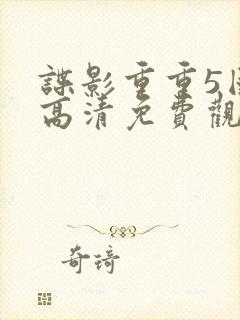 諜影重重5
高清免費觀
奇琦